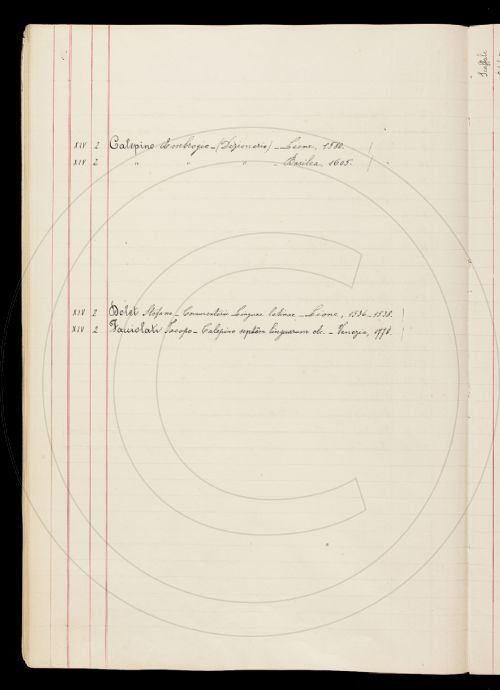 Scaffale
XIV 2 Calepino Ambrogio - (Dizionario) - Leone, 1580.
XIV 2 " " " - Basilea, 1605.
XIV 2 Dolet Stefano - Commentarii Linguae latinae - Leone, 1536-1538.
XIV 2 Facciolati Jacopo - Calepino septem linguarum etc. - Venezia, 1778.